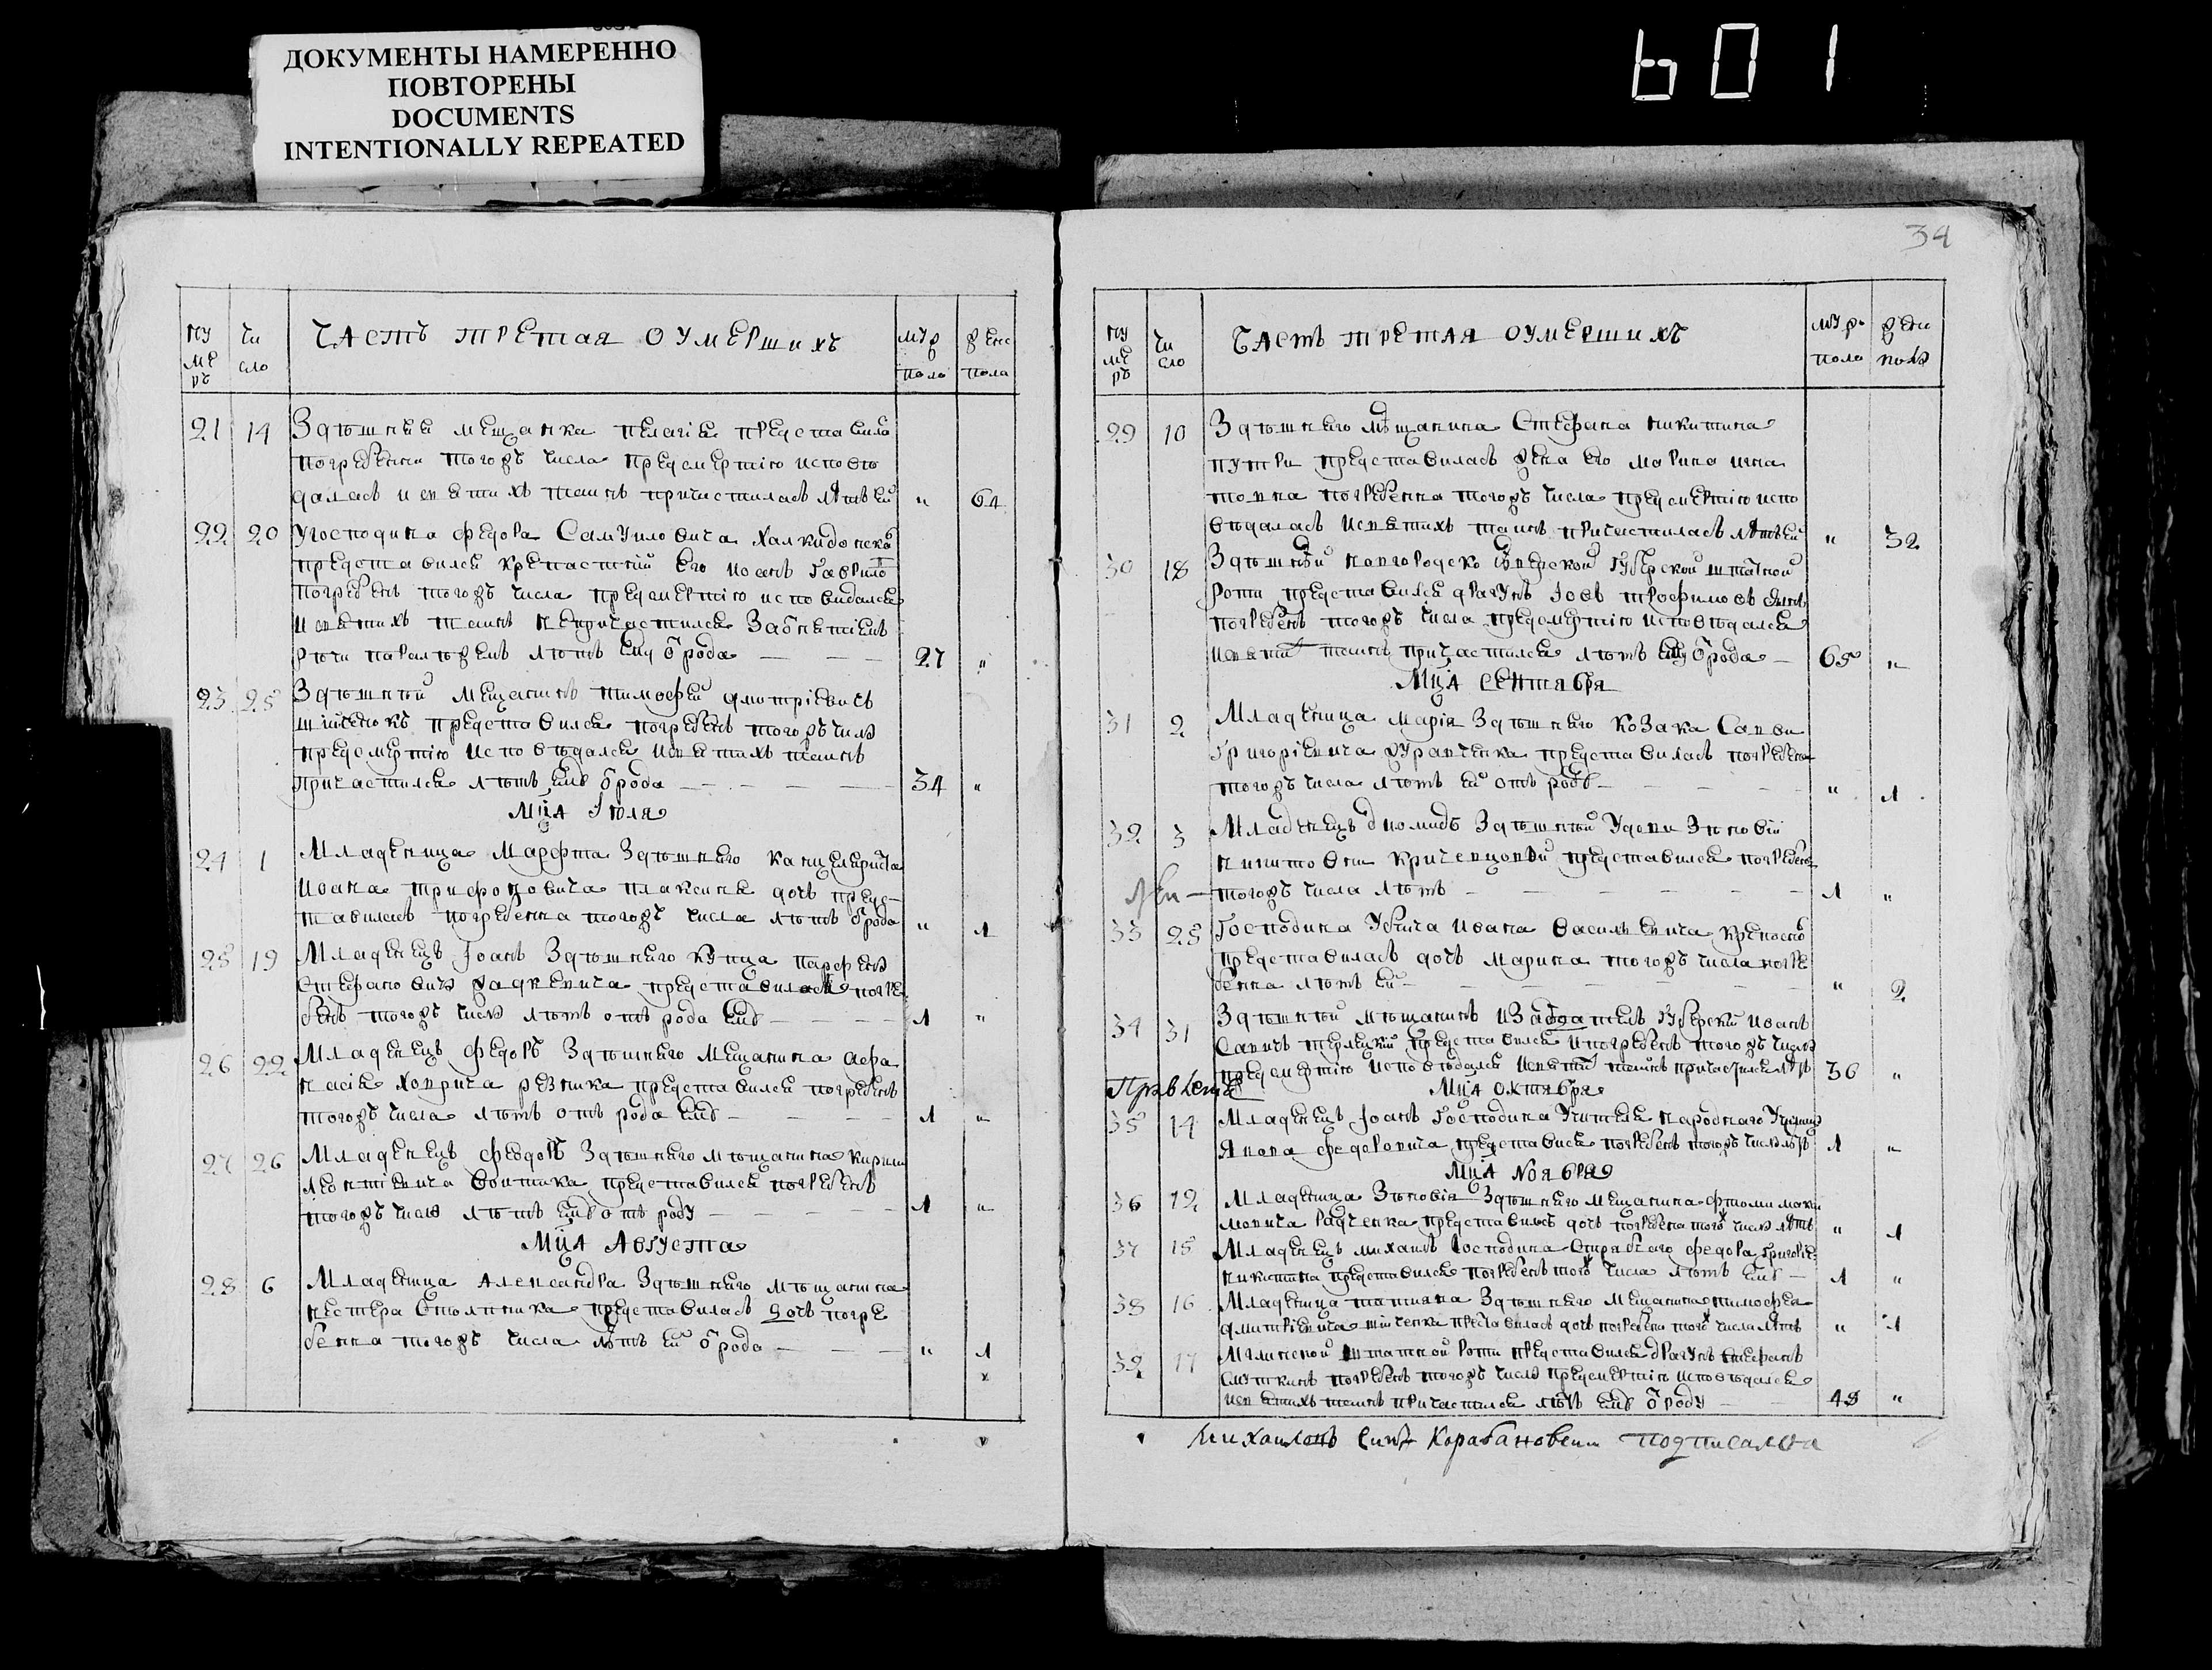 ДОКУМЕНТЫ НАМЕРЕННО
ПОВТОРЕНЫ
DOCUMENTS
INTENTIONALLY REPEATED
601
ну меръ
чи сло
часть третая оумершихъ
муж пола
женс пола
21 14 Здѣшнея мещанка пелагія представила
погребенна тогожъ числа предсмертію исповѣ
далась исвятихъ таинъ причастилась лѣтъ ей " 64
22 20 Угосподина федора Самуиловича Халкидонско
представился крепастній его иоанъ Гаврило
погребенъ тогожъ числа предсмертію исповидался
исвятихъ таинъ непричастился Заотнятіемъ
рѣчи параличемъ лѣтъ ему о рода 27 "
23 25 Здѣшній мещанинъ тимофей дмитріевичъ
представился погребенъ тогожъ числа
предсмертію исповѣдался исвятихъ таинъ
причастился лѣтъ ему о рода 34 "
Мца Іюля
24 1 Младеница Марфта Здѣшнего канцелериста
ивана трифоновича плаксина дочь предс
тавилась погребенна тогожъ числа лѣтъ о рода " 1
25 19 Младенецъ Іоанъ Здѣшнего купца парфена
Стефановича представился погре
бенъ тогожъ числа лѣтъ отъ рода ему 1 "
26 22 Младенецъ федоръ Здѣшнего Мещанина афа
насія резника представился погребенъ
тогожъ числа лѣтъ отъ рода ему 1 "
27 26 Младенецъ феодоръ Здѣшнего мѣщанина кирил
леонтіевича воитика представился погребенъ
тогожъ числа лѣтъ ему отъ роду 1 "
Мца Августа
28 6 Младеница Александра Здѣшнего мѣщанина
нестера Столпника представилась дочь погре
бенна тогожъ числа лѣтъ ей о рода " 1
34
ну меръ
чи сло
часть третая оумершихъ
муж пола
жен пола
29 10 Здѣшнего мѣщанина Стефана никитина
представилась жена его марина
погребенна тогожъ числа предсмертію испо
вѣдалась исвятихъ таинъ причастилась лѣтъ ей " 32
30 18 Здѣшней новгородско сѣверской губерской штатной
роти представился драгунъ Іовъ трофимовъ синъ
погребенъ тогожъ числа предсмертію исповѣдался
исвяти таинъ причастился лѣтъ ему о рода 65 "
Мца Сентября
31 2 Младеница марія Здѣшнего Козака Савви
Григоріевича журавченка представилась погребена
тогожъ числа лѣтъ ей отъ роду " 1
32 3 Младенецъ диомидъ Здѣшней Удови Зиновіи
представился погребенъ
тогожъ числа лѣтъ 1 "
33 25 Господина ивана василевича крепосно
представилась дочь марина тогожъ числа погре
бенна лѣтъ ей " 2
34 31 Здѣшній мѣщанинъ Губерскій иванъ
Савичъ представился ипогребенъ тогожъ числа
предсмертію исповѣдался исвяти таинъ причастился лѣтъ 36 "
Мца октября
35 14 Младенецъ Іоанъ Господина Учителя народнаго Училища
Якова федоровича представися погребенъ тогожъ числа лѣтъ 1 "
Мца Ноября
36 12 Младеница Зѣновія Здѣшнего мещанина
радченка представилась дочь погребена того числа лѣтъ " 1
37 15 Младенецъ михаилъ Господина Стряпчаго федора григорія
никитина представился погребенъ того числа лѣтъ ему 1 "
38 16 Младеница татияна Здѣшнего мещанина тимофея
дмитріевича представилась дочь погребена того числа лѣтъ " 1
39 17 Мглинской штатной роти представился драгунъ Стефанъ
погребенъ тогожъ числа предсмертію исповѣдался
исвятихъ таинъ причастился лѣтъ ему о роду 48 "
подписался